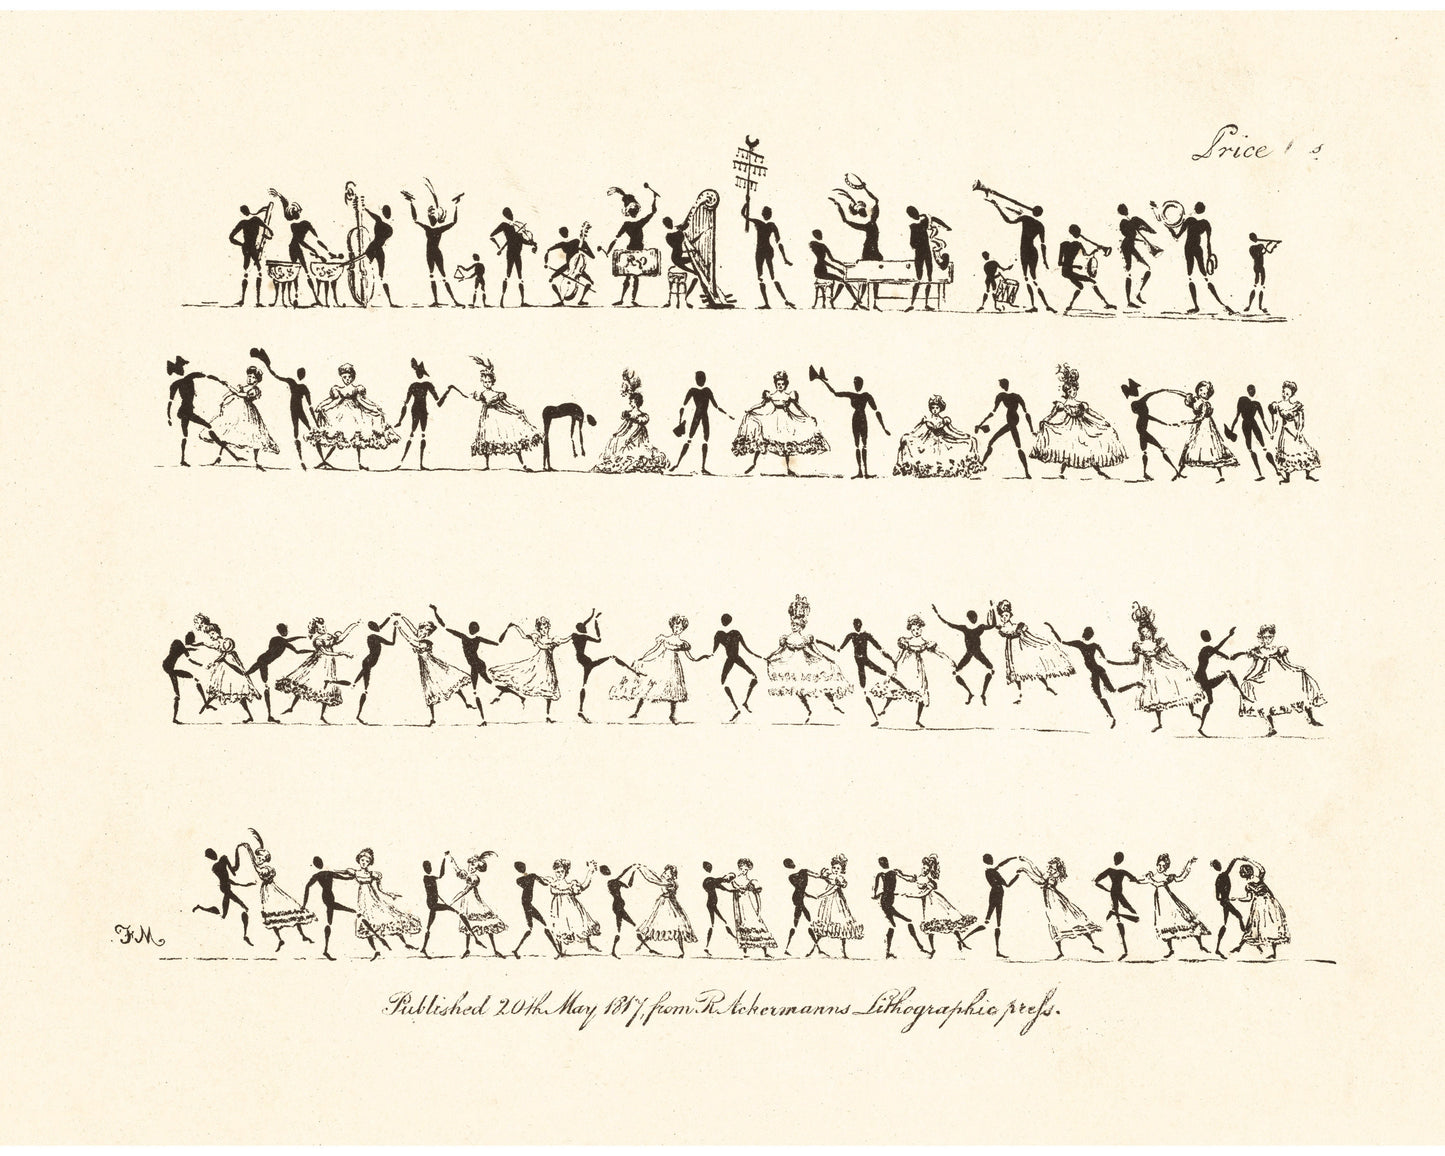 Price
F.M.
Published 20th May 1817, from R. Ackermanns Lithographic press.